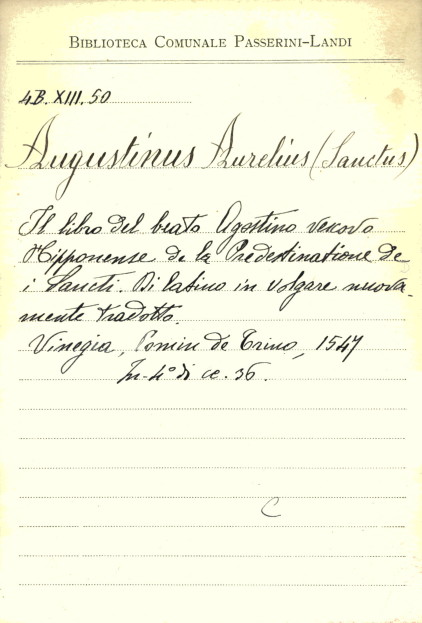 BIBLIOTECA COMUNALE PASSERINI-LANDI
4B. XIII. 50
Augustinus Aurelius (Sanctus)
Il libro del beato Agostino vescovo
Hipponense de la Predestinatione de
i Sancti. Di latino in volgare nuova-
mente tradotto.
Vinegia, Comin de Trino, 1547
In-4° di cc. 36.
C